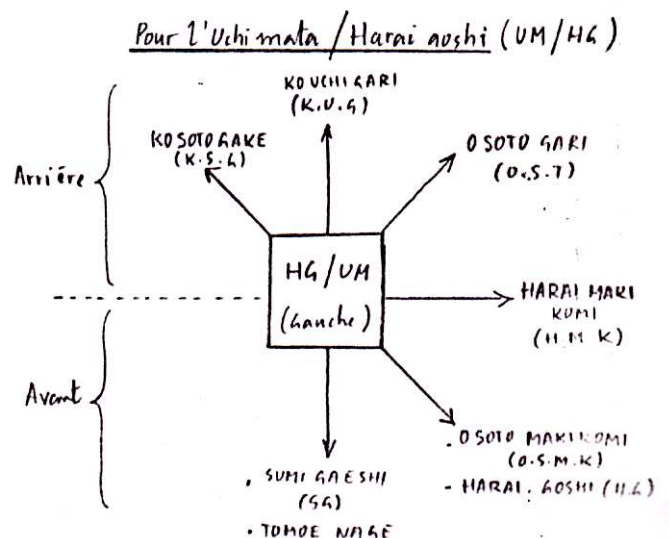 Pour l'Uchi mata / Harai goshi (UM/HG)
KO UCHI GARI
(K.U.G)
KO SOTO GAKE
(K.S.G)
O SOTO GARI
(O.S.T)
Arrière
HG/UM
(Gauche)
HARAI MAKI
KOMI
(H.M.K)
Avant
. O SOTO MAKIKOMI
(O.S.M.K)
- HARAI. GOSHI (H.G)
. SUMI GAESHI
(SG)
. TOMOE NAGE